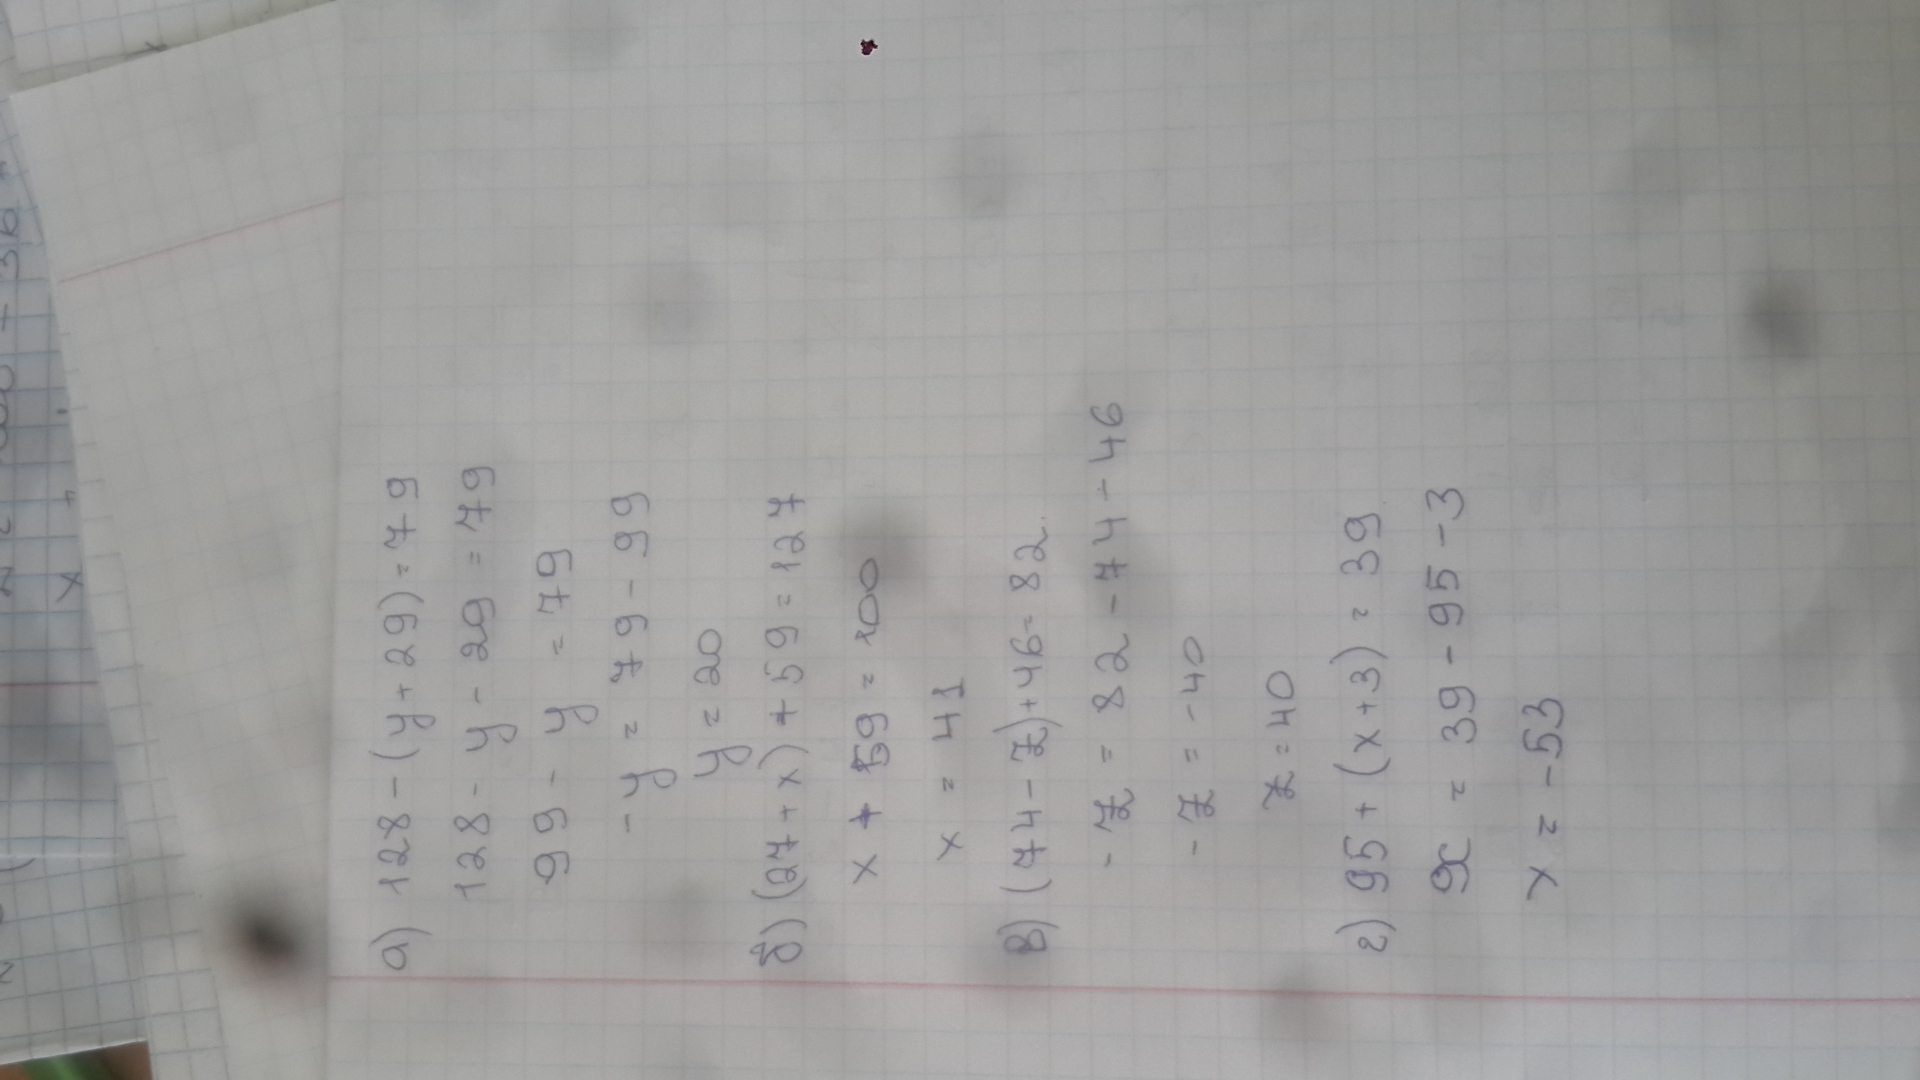 а) 128 - (y + 29) = 79
128 - y - 29 = 79
99 - y = 79
- y = 79 - 99
y = 20
б) (27 + x) + 59 = 127
x + 59 = 100
x = 41
в) (74 - z) + 46 = 82
- z = 82 - 74 - 46
- z = - 40
z = 40
г) 95 + (x + 3) = 39
x = 39 - 95 - 3
x = - 53